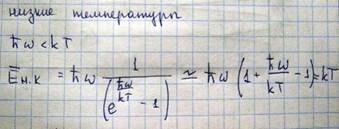 низкие температуры
ħω < kT
Ēн.к = ħω 1/(e^(ħω/kT) - 1) ≃ ħω (1 + ħω/kT - 1) = kT